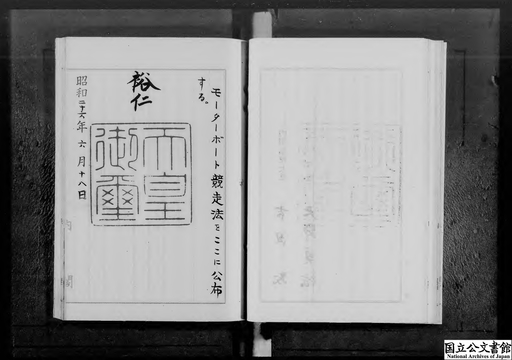 モーターボート競走法をここに公布
する。
裕仁
天皇
御璽
昭和二十六年六月十八日
内閣
国立公文書館
National Archives of Japan